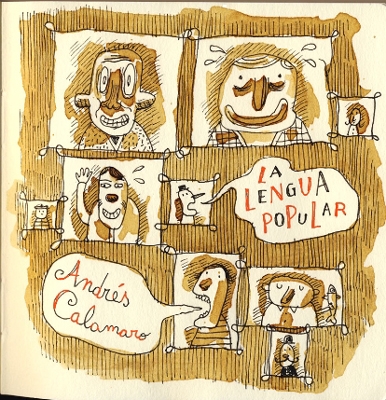 LA
LENGUA
POPULAR
Andrés
Calamaro